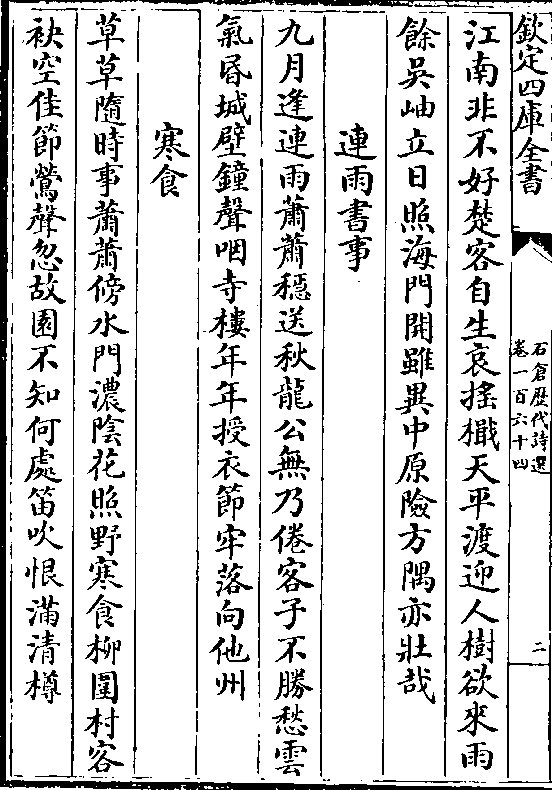 欽定四庫全書
石倉歴代詩選
卷一百六十四
二
江南非不好楚客自生哀揺檝天平渡迎人樹欲來雨
餘吳岫立日照海門開雖異中原險方隅亦壯哉
連雨書事
九月逢連雨蕭蕭穩送秋龍公無乃倦客子不勝愁雲
氣昏城壁鐘聲咽寺樓年年授衣節牢落向他州
寒食
草草隨時事蕭蕭傍水門濃陰花照野寒食柳圍村客
袂空佳節鶯聲忽故園不知何處笛吹恨滿清樽